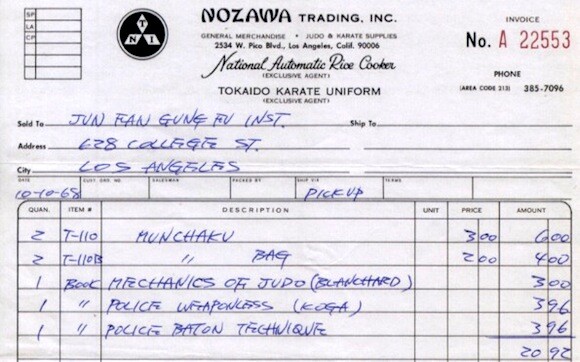 SP
LA
CP
T
N I
NOZAWA TRADING, INC.
GENERAL MERCHANDISE • JUDO & KARATE SUPPLIES
2534 W. Pico Blvd., Los Angeles, Calif. 90006
National Automatic Rice Cooker
(EXCLUSIVE AGENT)
TOKAIDO KARATE UNIFORM
(EXCLUSIVE AGENT)
INVOICE
No. A 22553
PHONE
(AREA CODE 213) 385-7096
Sold To JUN FAN GUNG FU INST. Ship To
Address 628 COLLEGE ST.
City LOS ANGELES
DATE CUST. ORD. NO. SALESMAN PACKED BY SHIP VIA TERMS
10-10-68 PICKUP
QUAN. ITEM # DESCRIPTION UNIT PRICE AMOUNT
2 T-110 MUNCHAKU 300 600
2 T-110B " BAG 200 400
1 BOOK MECHANICS OF JUDO (BLANCHARD) 300
1 " POLICE WEAPONLESS (KOGA) 396
1 " POLICE BATON TECHNIQUE 396
20 92